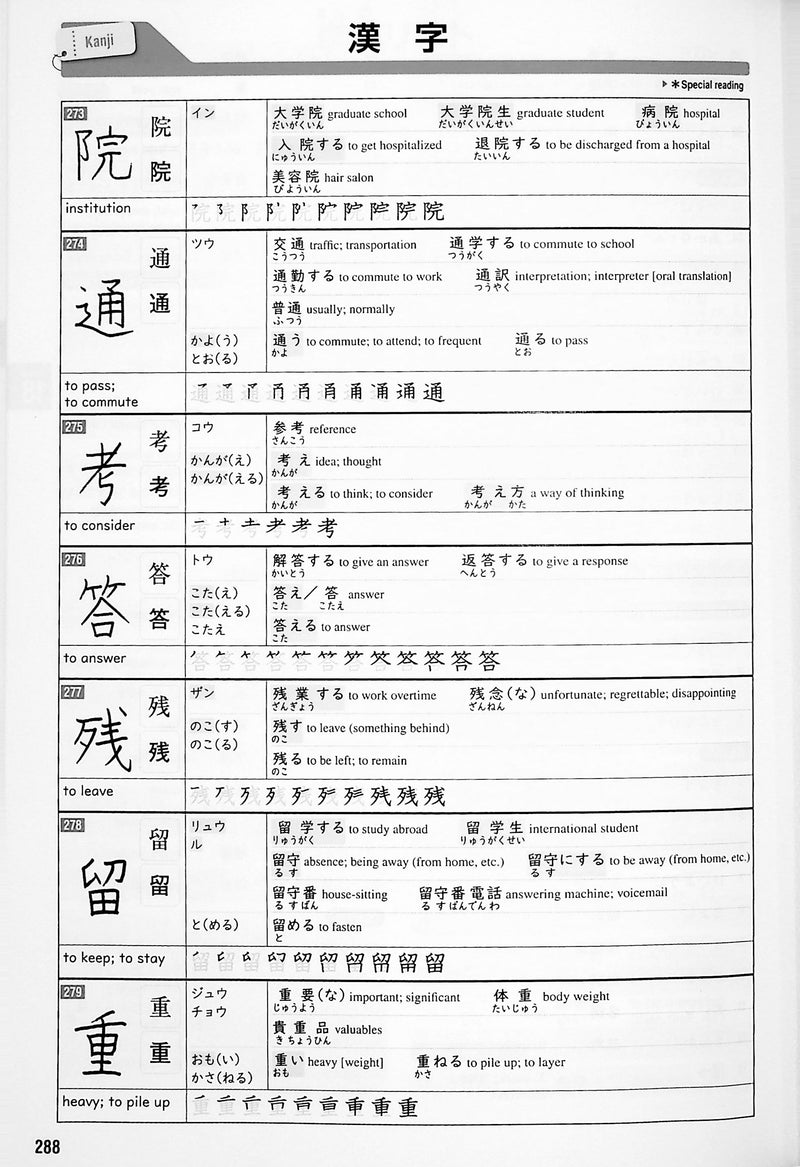 Kanji
漢字
▶ *Special reading
273
院
院
院
イン
大学院 graduate school 大学院生 graduate student 病院 hospital
だいがくいん だいがくいんせい びょういん
入院する to get hospitalized 退院する to be discharged from a hospital
にゅういん たいいん
美容院 hair salon
びよういん
institution
274
通
通
通
ツウ
交通 traffic; transportation 通学する to commute to school
こうつう つうがく
通勤する to commute to work 通訳 interpretation; interpreter [oral translation]
つうきん つうやく
普通 usually; normally
ふつう
かよ(う)
とお(る)
通う to commute; to attend; to frequent 通る to pass
かよ とお
to pass;
to commute
275
考
考
考
コウ
参考 reference
さんこう
かんが(え)
考え idea; thought
かんが
かんが(える)
考える to think; to consider 考え方 a way of thinking
かんが かんが かた
to consider
276
答
答
答
トウ
解答する to give an answer 返答する to give a response
かいとう へんとう
こた(え)
こた(える)
こたえ
答え/答 answer
こた こたえ
答える to answer
こた
to answer
277
残
残
残
ザン
残業する to work overtime 残念(な) unfortunate; regrettable; disappointing
ざんぎょう ざんねん
のこ(す)
のこ(る)
残す to leave (something behind)
のこ
残る to be left; to remain
のこ
to leave
278
留
留
留
リュウ
ル
留学する to study abroad 留学生 international student
りゅうがく りゅうがくせい
留守 absence; being away (from home, etc.) 留守にする to be away (from home, etc.)
るす るす
留守番 house-sitting 留守番電話 answering machine; voicemail
るすばん るすばんでんわ
と(める)
留める to fasten
と
to keep; to stay
279
重
重
重
ジュウ
チョウ
重要(な) important; significant 体重 body weight
じゅうよう たいじゅう
貴重品 valuables
きちょうひん
おも(い)
かさ(ねる)
重い heavy [weight] 重ねる to pile up; to layer
おも かさ
heavy; to pile up
288